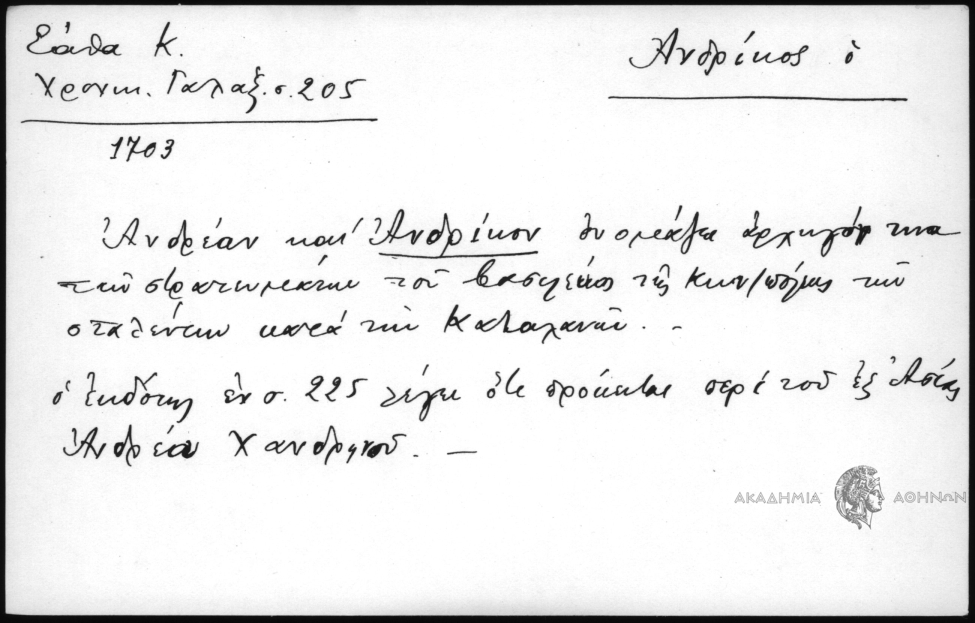 Σάθα Κ.
Χρονικ. Γαλαξ. σ. 205
Ἀνδρίκος ὁ
1703
Ἀνδρέαν καί Ἀνδρίκον ὀνομάζει ἀρχηγόν τινα
τῶν στρατευμάτων τοῦ βασιλείου τῆς Κων/πόλεως τῶν
σταλέντων κατά τῶν Καταλανῶν. -
ὁ ἐκδότης ἐν σ. 225 λέγει ὅτι πρόκειται περί τοῦ ἐξ Ἀσίας
Ἀνδρέου Χανδρηνοῦ. —
ΑΚΑΔΗΜΙΑ ΑΘΗΝΩΝ